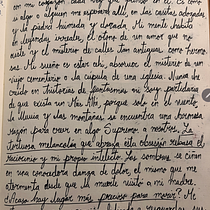 con mi corazón
o algo o alguien más allá, en las calles adoquinadas
y la piedra húmeda y dorada. Mi mente habita
en leyendas irreales, el olor de un amor que no
existe y el misterio de calles tan antiguas como hermo-
sas. Mi sueño es estar ahí, absorber el misterio de un
viejo cementerio o la cúpula de una iglesia. Nunca he
creído en historias de fantasmas ni soy partidaria
de que exista un Más Allá, porque solo en el viento,
la lluvia y las montañas, se encuentra una hermosa
razón para creer en algo Supremo a nosotros. La
tortuosa melancolía que abraza esta obsesión rebasa el
raciocinio y mi propio intelecto. Las sombras se ciñen
en una conocedora danza de dolor, el mismo que me
atormenta desde que el muerte visitó a mi madre.
¿Acaso hay lugar más preciso para morir? Me